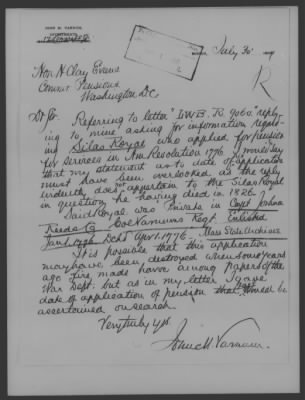 JOHN M. VARNUM,
July 30
R
Hon H. Clay Evans
Comnr Pensions
Washington D.C.
Dr Sir. Referring to letter "I.W.B. R. 9060" reply-
ing to mine asking for information regard-
ing Silas Royal who applied for pension
for services in Am Revolution 1776 I would say
that my statement as to date of application
must have been overlooked as the reply
evidently does not appertain to the Silas Royal
in question, he having died in 1826.
Said Royal was Private in Capt Joshua
Reeds Co Col Varnums Regt. Enlisted
Jan 1. 1776. Dehd Apr 1. 1776. Mass State Archives
It is possible that this application
may have been destroyed when some years
ago fire made havoc among Papers of the
War Dept. but as in my letter I gave
date of application of pension that should be
ascertained on search.
Very truly yrs.
John M. Varnum